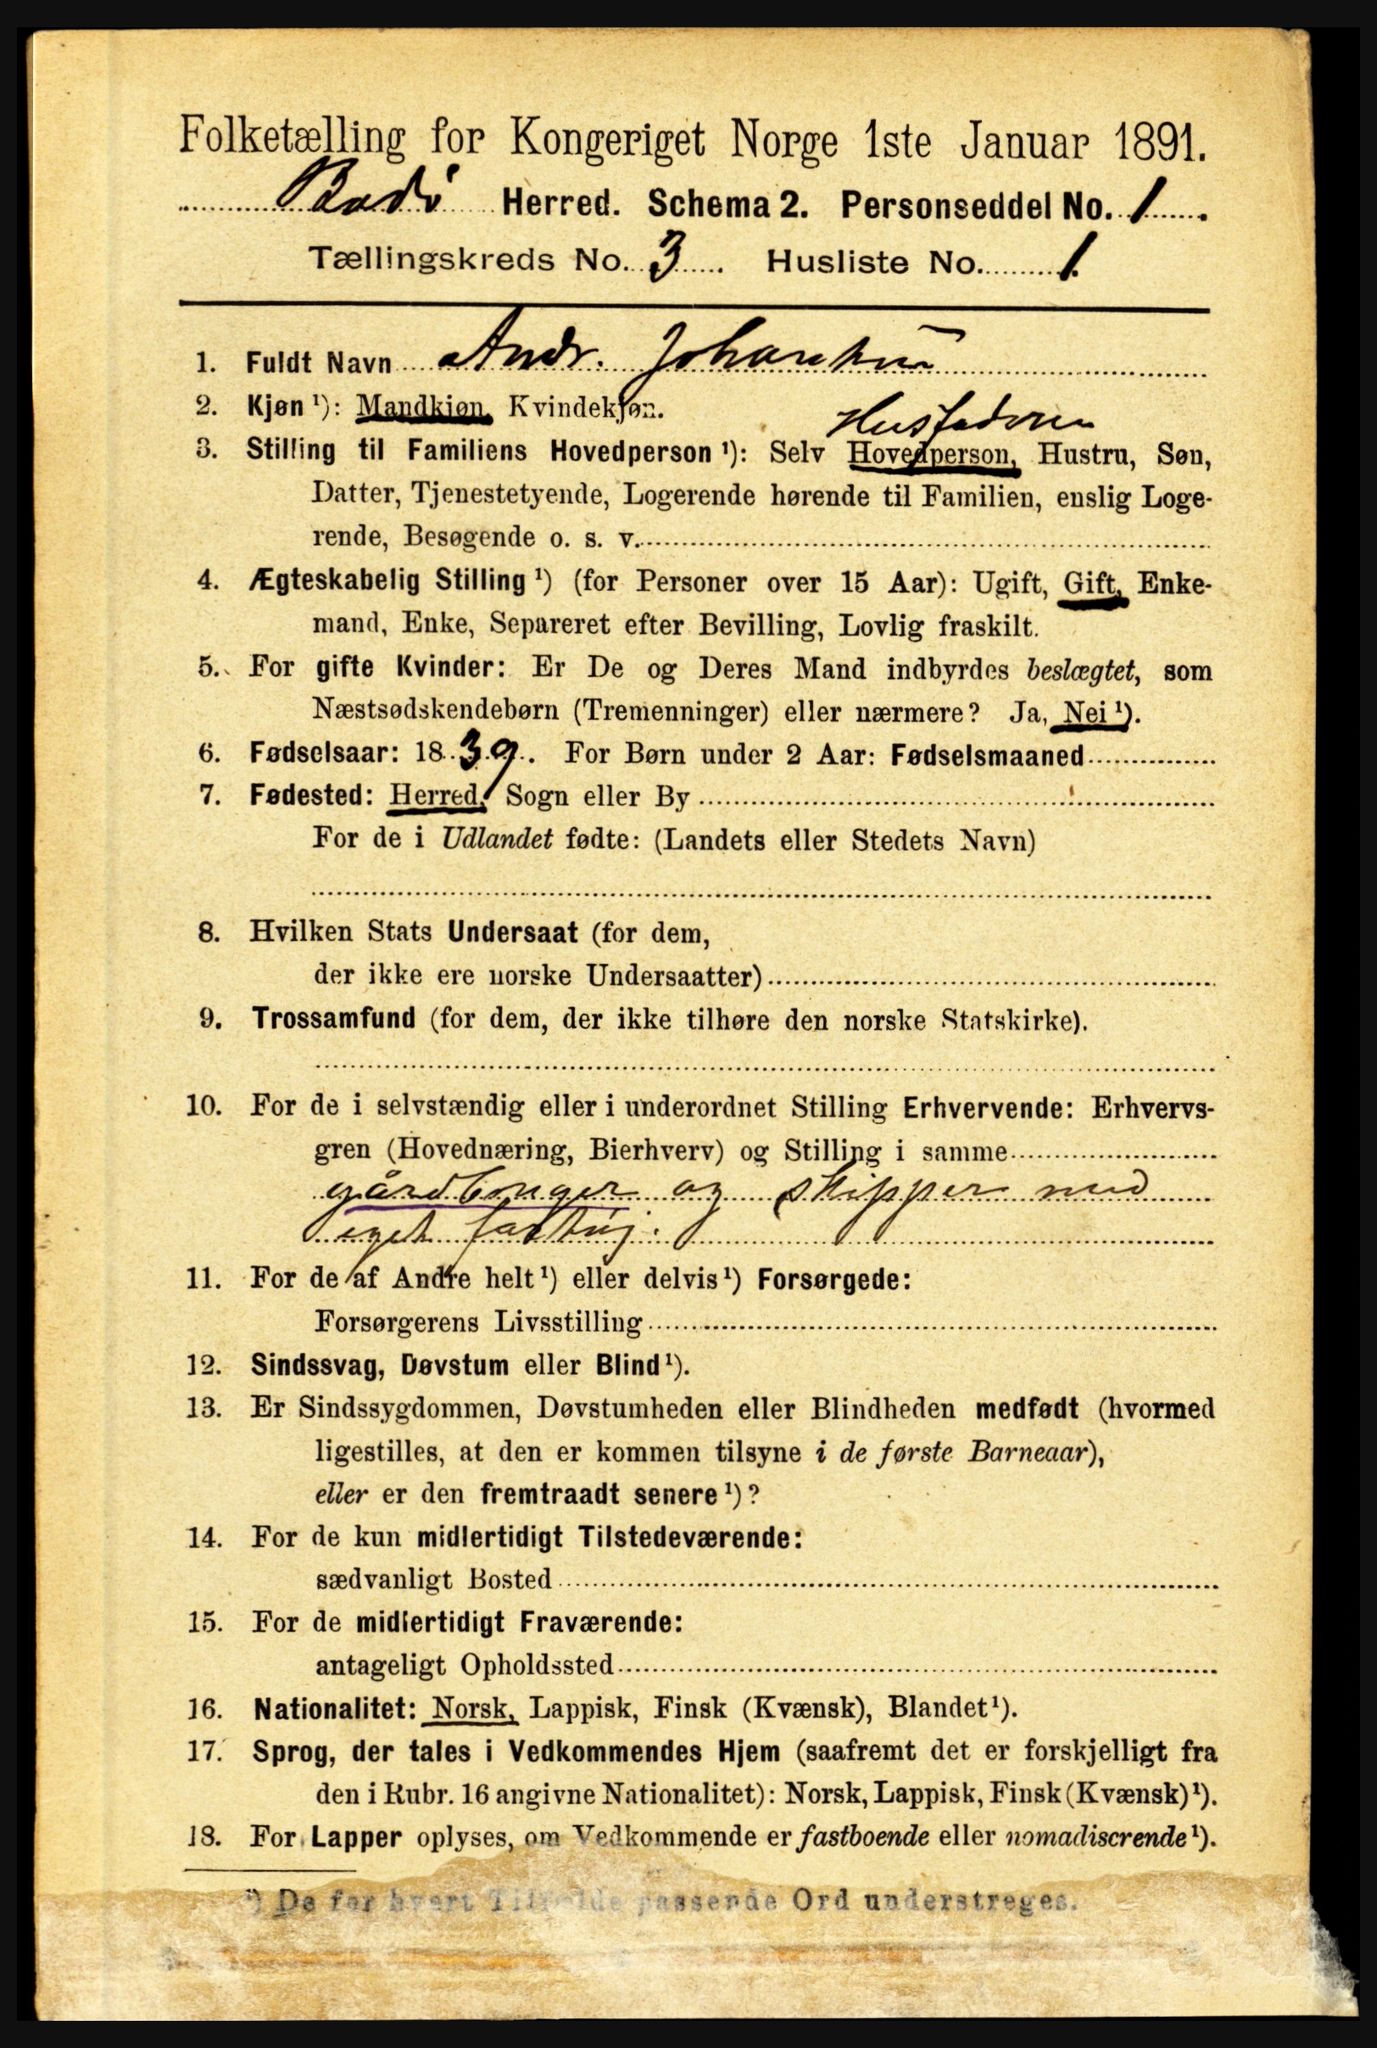 Folketælling for Kongeriget Norge 1ste Januar 1891.
Bodø Herred. Schema 2. Personseddel No. 1.
Tællingskreds No. 3. Husliste No. 1.
1. Fuldt Navn Andr.
2. Kjøn ¹): Mandkjøn, Kvindekjøn.
Husfader
3. Stilling til Familiens Hovedperson ¹): Selv Hovedperson, Hustru, Søn,
Datter, Tjenestetyende, Logerende hørende til Familien, enslig Loge-
rende, Besøgende o. s. v.
4. Ægteskabelig Stilling ¹) (for Personer over 15 Aar): Ugift, Gift, Enke-
mand, Enke, Separeret efter Bevilling, Lovlig fraskilt.
5. For gifte Kvinder: Er De og Deres Mand indbyrdes beslægtet, som
Næstsødskendebørn (Tremenninger) eller nærmere? Ja, Nei ¹).
6. Fødselsaar: 1839. For Børn under 2 Aar: Fødselsmaaned
7. Fødested: Herred, Sogn eller By
For de i Udlandet fødte: (Landets eller Stedets Navn)
8. Hvilken Stats Undersaat (for dem,
der ikke ere norske Undersaatter)
9. Trossamfund (for dem, der ikke tilhøre den norske Statskirke).
10. For de i selvstændig eller i underordnet Stilling Erhvervende: Erhvervs-
gren (Hovednæring, Bierhverv) og Stilling i samme
gårdbruger og skipper med
eget fartøj.
11. For de af Andre helt ¹) eller delvis ¹) Forsørgede:
Forsørgerens Livsstilling
12. Sindssvag, Døvstum eller Blind ¹).
13. Er Sindssygdommen, Døvstumheden eller Blindheden medfødt (hvormed
ligestilles, at den er kommen tilsyne i de første Barneaar),
eller er den fremtraadt senere ¹)?
14. For de kun midlertidigt Tilstedeværende:
sædvanligt Bosted
15. For de midlertidigt Fraværende:
antageligt Opholdssted
16. Nationalitet: Norsk, Lappisk, Finsk (Kvænsk), Blandet ¹).
17. Sprog, der tales i Vedkommendes Hjem (saafremt det er forskjelligt fra
den i Rubr. 16 angivne Nationalitet): Norsk, Lappisk, Finsk (Kvænsk) ¹).
18. For Lapper oplyses, om Vedkommende er fastboende eller nomadiserende ¹).
¹) De for hvert Tilfælde passende Ord understreges.